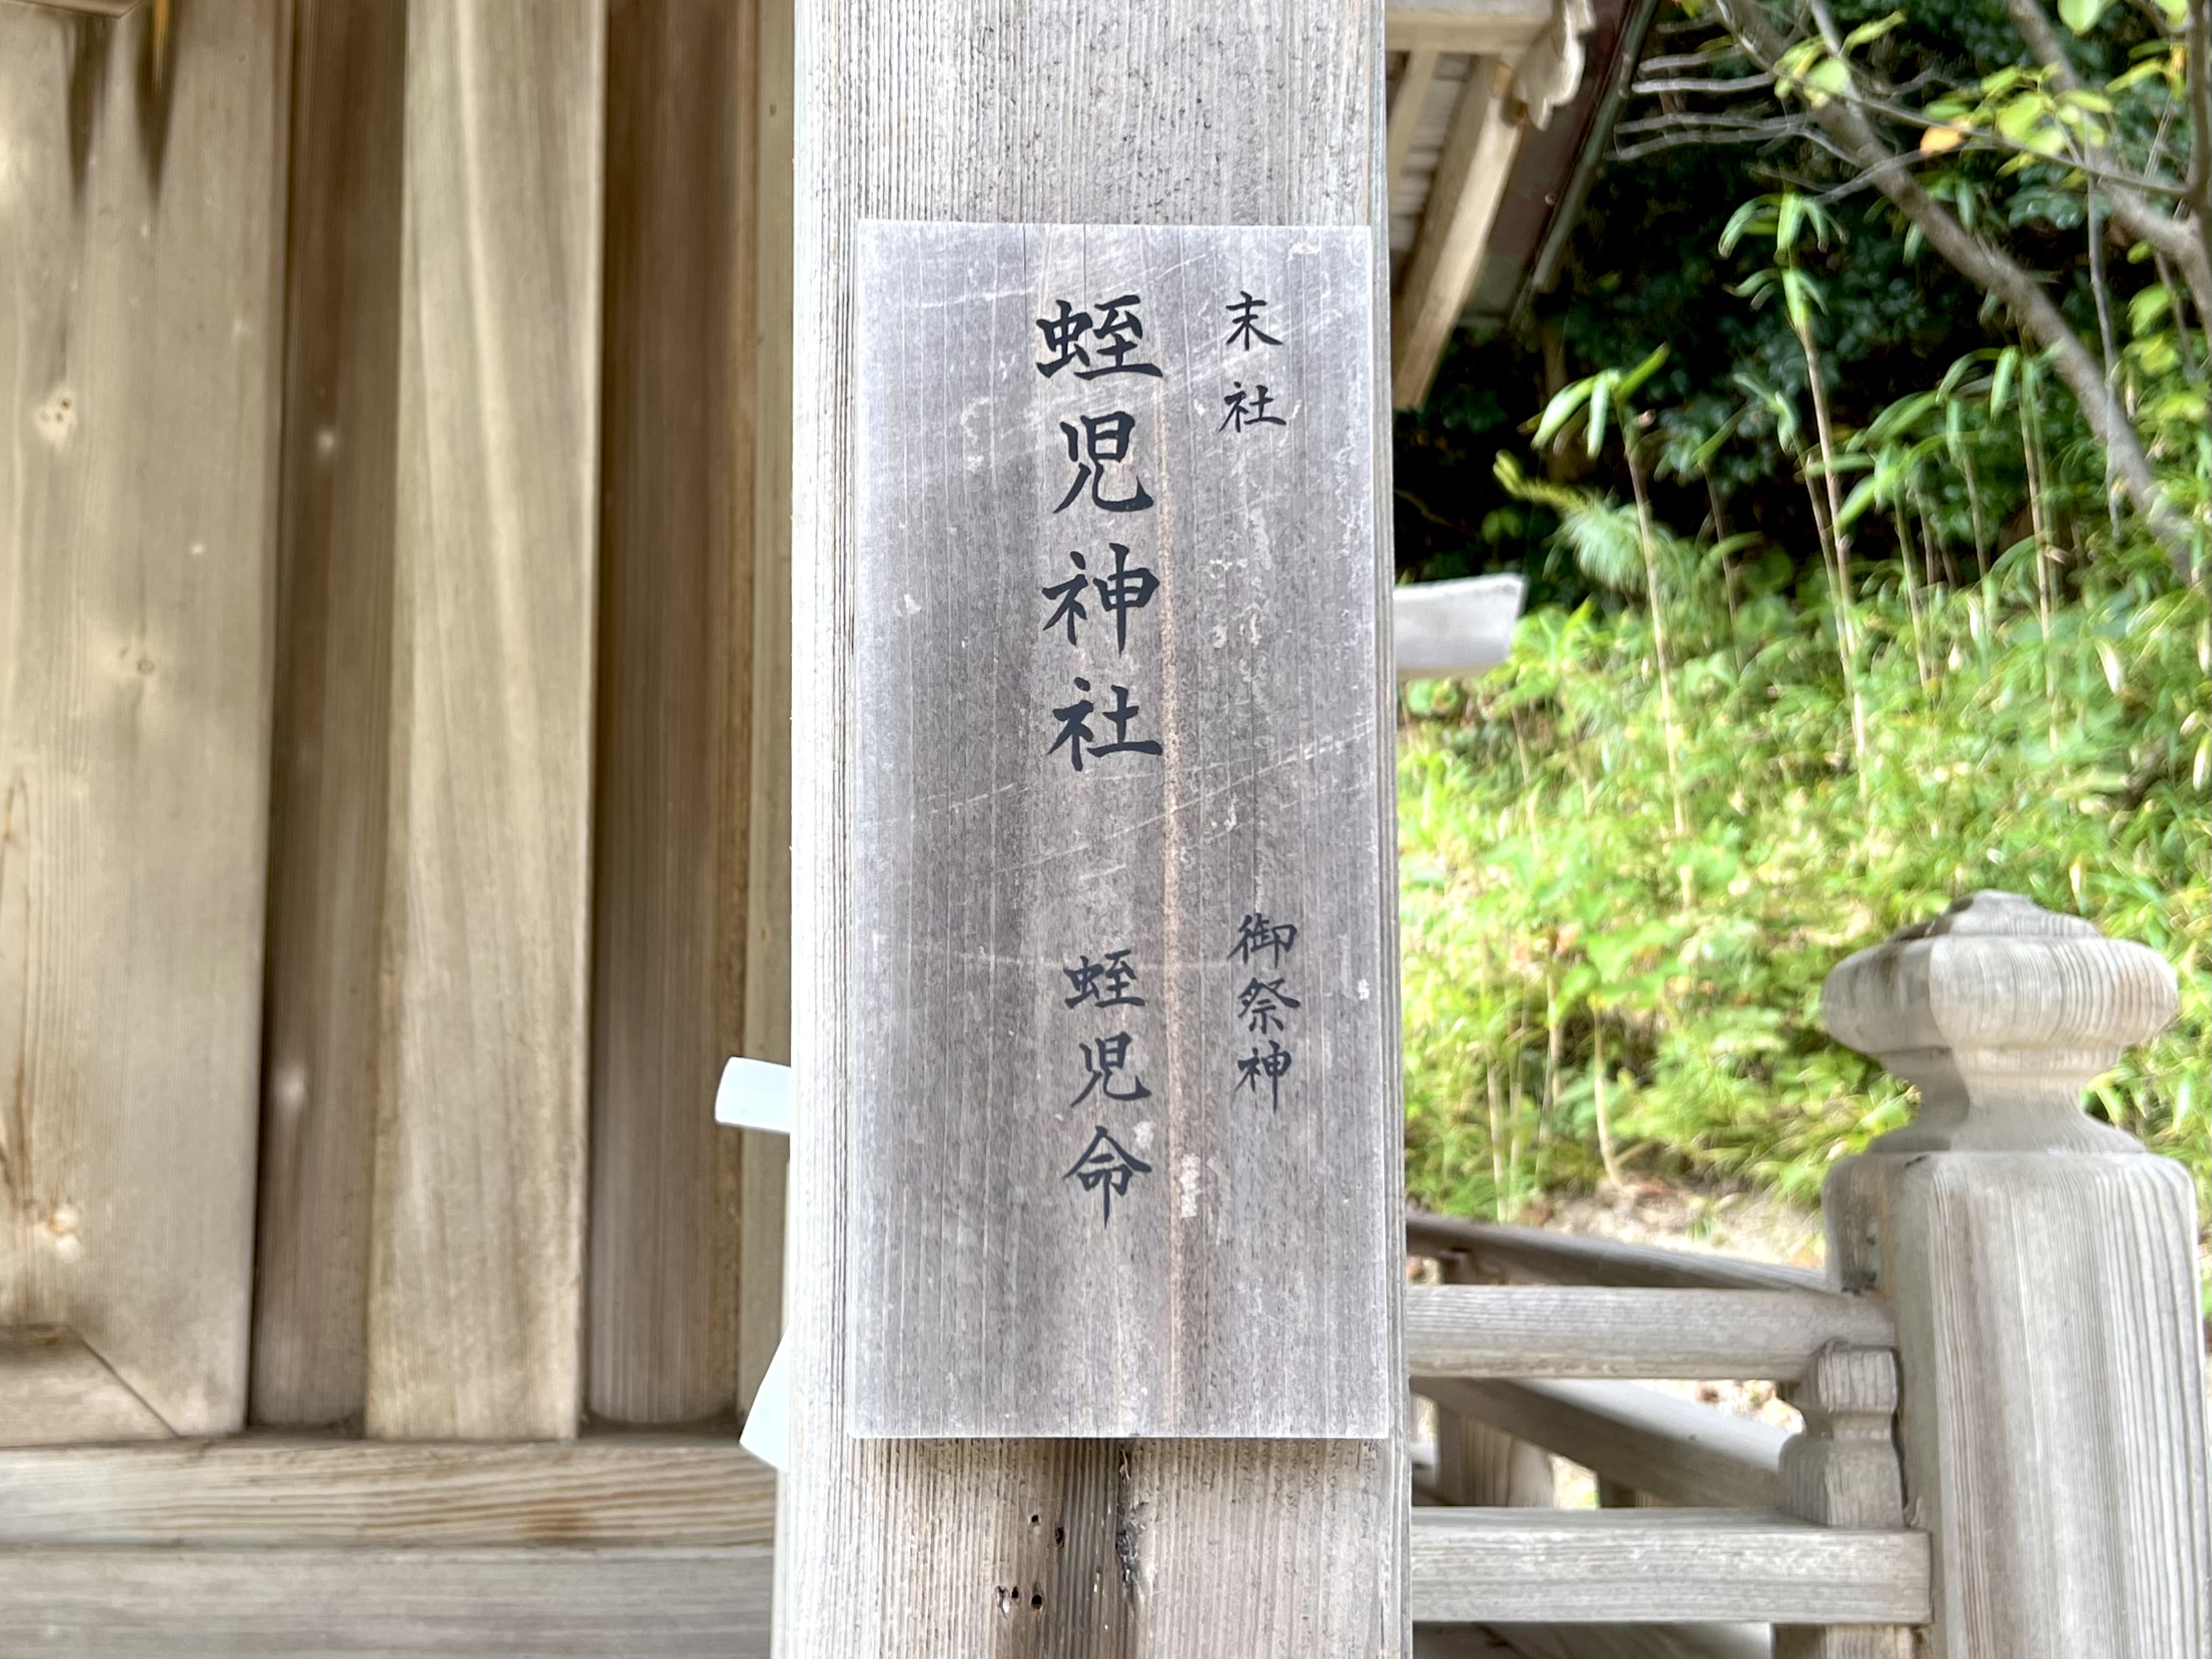 末社
御祭神
蛭児神社
蛭児命